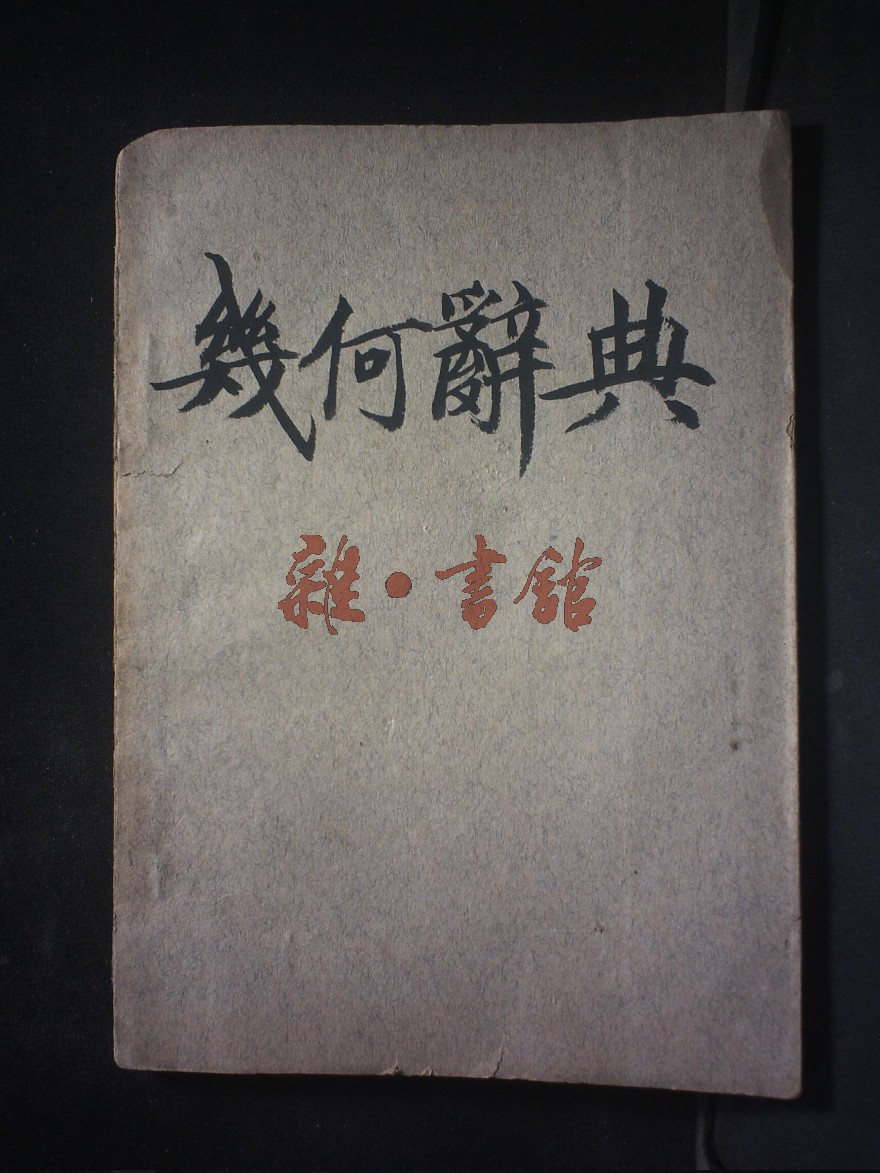 幾何辭典
雜·書館